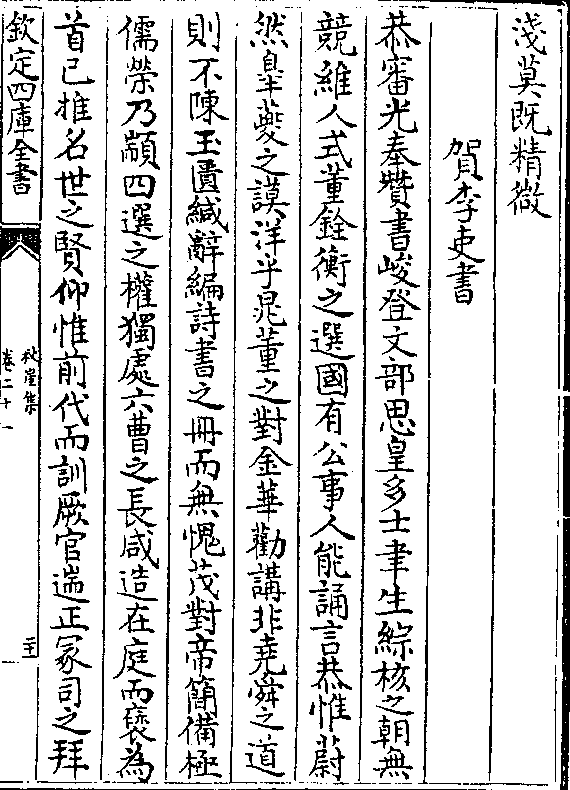 淺莫既精微
賀李吏書
恭審光奉贊書峻登文部思皇多士聿生綜核之朝無
競維人式董銓衡之選國有公事人能誦言恭惟蔚
然臯夔之謨洋乎晁董之對金華勸講非堯舜之道
則不陳玉匱緘辭編詩書之冊而無愧茂對帝簡備極
儒榮乃顓四選之權獨處六曹之長咸造在庭而褎為
首已推名世之賢仰惟前代而訓厥官遄正冢司之拜
欽定四庫全書
秋崖集
卷二十一